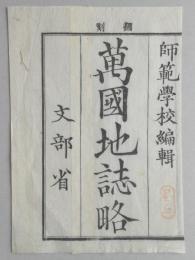 翻刻
師範學校編輯
萬國地誌略
文部省